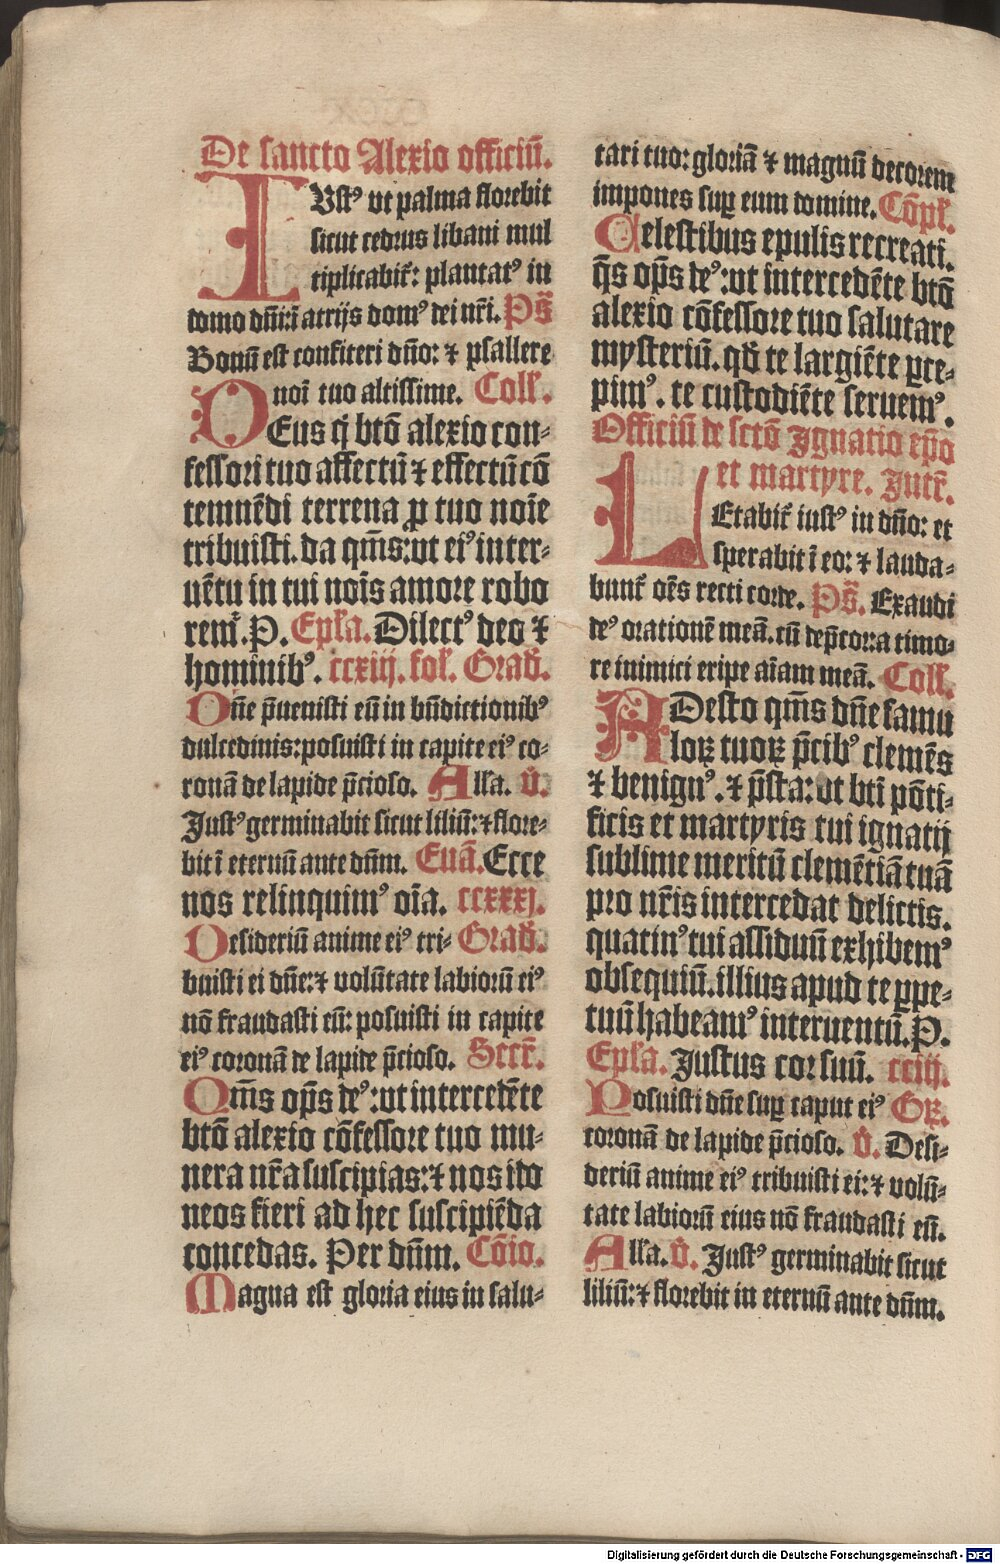 De sancto Alexio officiū.
IUstꝰ ut palma florebit
sicut cedrus libani mul
tiplicabit᷑: plantatꝰ in
domo dn̄i: ī atrijs domꝰ dei nr̄i. Ps̄
Bonū est confiteri dn̄o: ⁊ psallere
noī tuo altissime. Coll᷑.
DEus q̄ btō alexio con-
fessori tuo affectū ⁊ effectū cō
temnēdi terrena ꝓ tuo noīe
tribuisti. da qm̄s: ut eiꝰ inter-
uētu in tui nois̄ amore robo
rem᷑. P. Epl̄a. Dilectꝰ deo ⁊
hominibꝰ. ccxiij. fol᷑. Grad̄.
Dn̄e p̄uenisti eū in bn̄dictionibꝰ
dulcedinis: posuisti in capite eiꝰ co-
ronā de lapide p̄cioso. Alla. v̄.
Justꝰ germinabit sicut liliū: ⁊ flore-
bit ī eternū ante dn̄m. Euā. Ecce
nos relinquimꝰ oīa. ccxxxj.
Desideriū anime eiꝰ tri- Grad̄.
buisti ei dn̄e: ⁊ volūtate labiorū eiꝰ
nō fraudasti eū: posuisti in capite
eiꝰ coronā de lapide p̄cioso. Secr̄.
Qm̄s op̄s deꝰ: ut intercedēte
btō alexio cōfessore tuo mu-
nera nr̄a suscipias: ⁊ nos ido
neos fieri ad hec suscipiēda
concedas. Per dn̄m. Cōio.
Magna est gloria eius in salu-
tari tuo: gloriā ⁊ magnū decorem
impones suꝑ eum domine. Cōpl᷑.
Celestibus epulis recreati.
q̄s op̄s deꝰ: ut intercedēte btō
alexio cōfessore tuo salutare
mysteriū. qd̄ te largiēte ꝑce-
pimꝰ. te custodiēte seruemꝰ.
Officiū de sctō Ignatio ep̄o
et martyre. Intr̄.
LEtabit᷑ iustꝰ in dn̄o: et
sperabit ī eo: ⁊ lauda-
bunt᷑ oēs recti corde. Ps̄. Exaudi
deꝰ orationē meā. cū dep̄cor: a timo-
re inimici eripe aīam meā. Coll᷑.
ADesto qm̄s dn̄e famu
loꝝ tuoꝝ p̄cibꝰ clemēs
⁊ benignꝰ. ⁊ p̄sta: ut bti pōti-
ficis et martyris tui ignatij
sublime meritū clemētiā tuā
pro nr̄is intercedat delictis.
quatinꝰ tui assiduū exhibemꝰ
obsequiū. illius apud te ꝑpe-
tuū habeamꝰ interuentū. P.
Epl̄a. Justus cor suū. cciij.
Posuisti dn̄e suꝑ caput eiꝰ Gꝝ.
coronā de lapide p̄cioso. v̄. Desi-
deriū anime eiꝰ tribuisti ei: ⁊ volū-
tate labiorū eius nō fraudasti eū.
Alla. v̄. Justꝰ germinabit sicut
liliū: ⁊ florebit in eternū ante dn̄m.
Digitalisierung gefördert durch die Deutsche Forschungsgemeinschaft - DFG